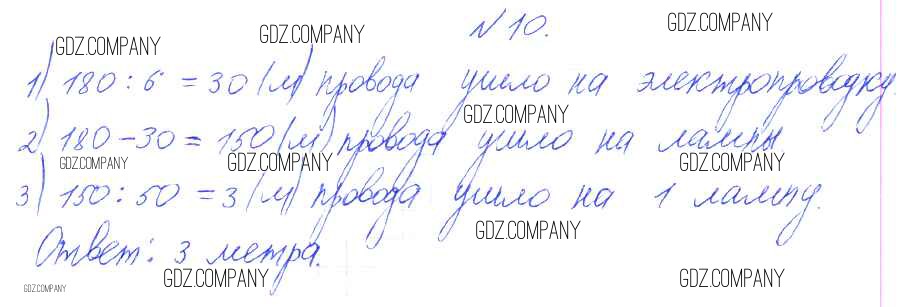 № 10.
1) 180 : 6 = 30 (м) провода ушло на электропроводку.
2) 180 - 30 = 150 (м) провода ушло на лампы
3) 150 : 50 = 3 (м) провода ушло на 1 лампу.
Ответ: 3 метра.
GDZ.COMPANY
GDZ.COMPANY
GDZ.COMPANY
GDZ.COMPANY
GDZ.COMPANY
GDZ.COMPANY
GDZ.COMPANY
GDZ.COMPANY
GDZ.COMPANY
GDZ.COMPANY
GDZ.COMPANY